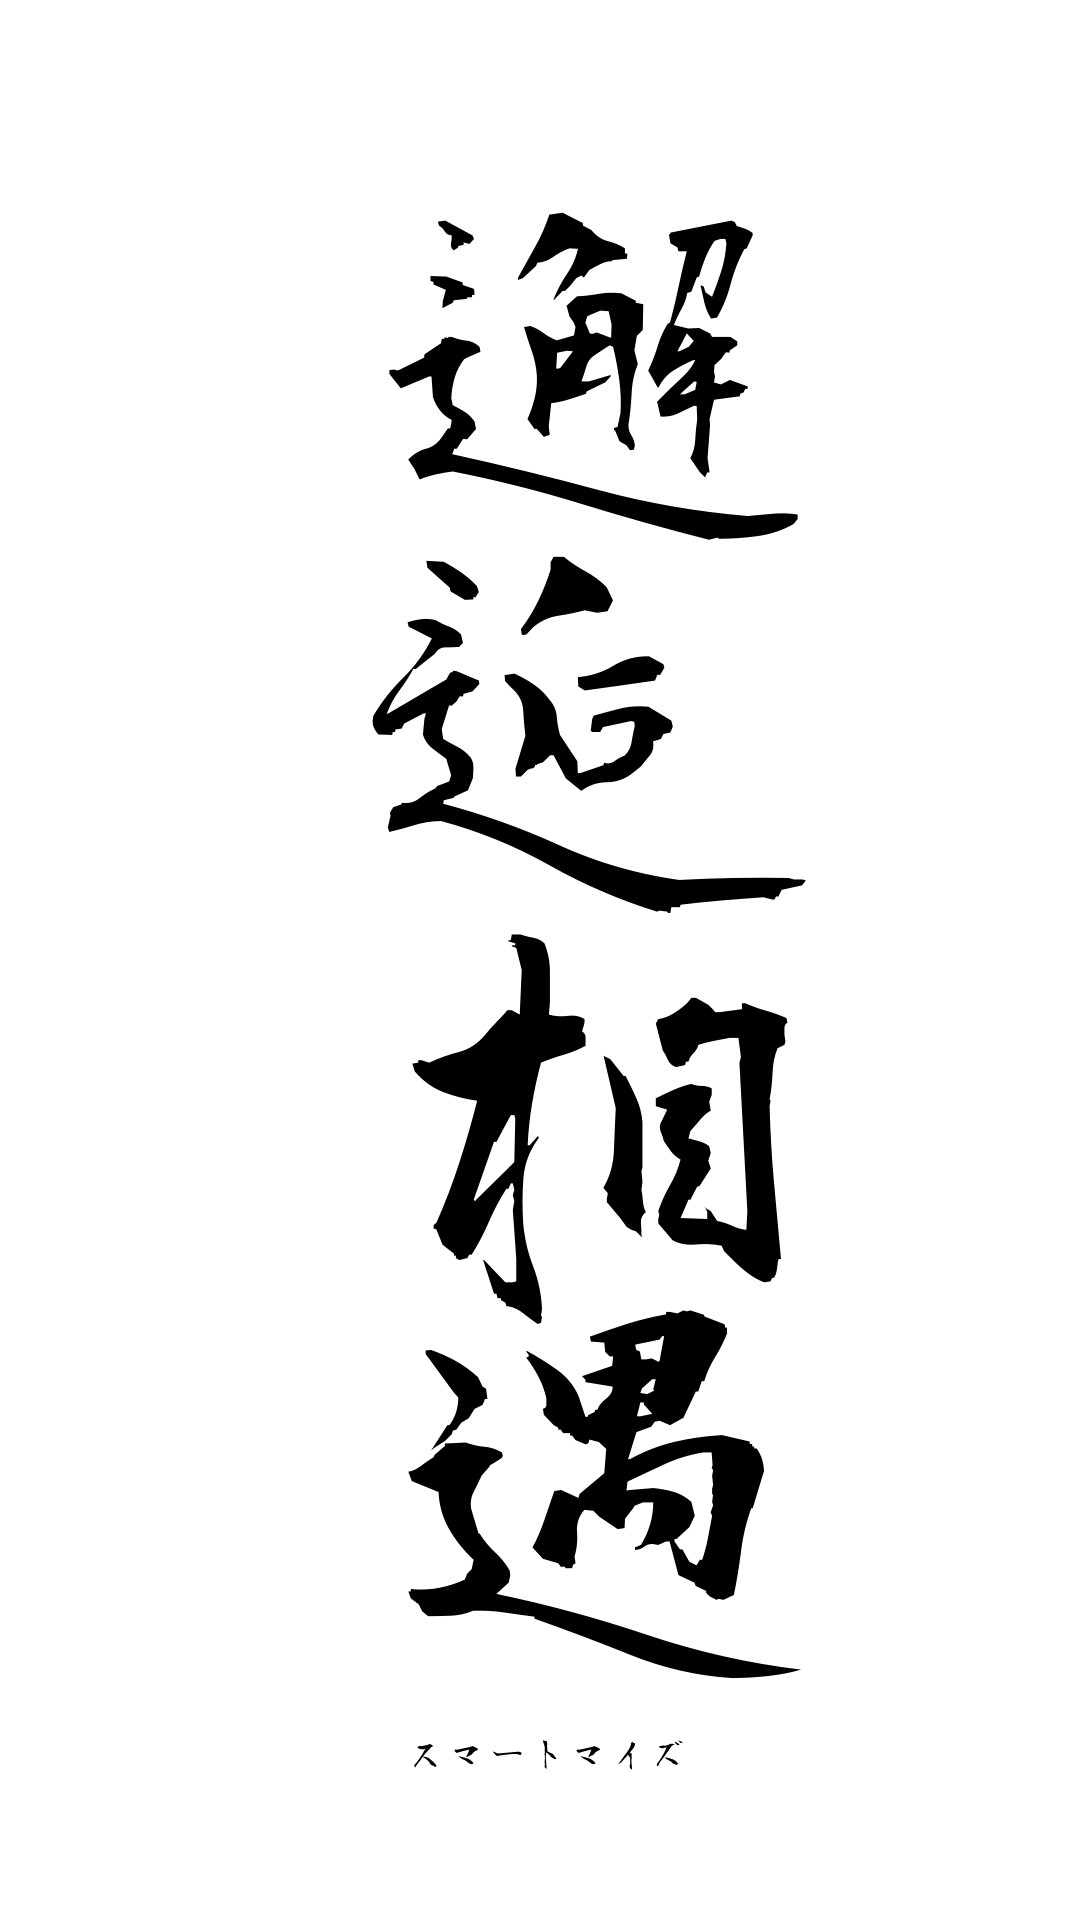 邂逅相遇
スマートマイズ